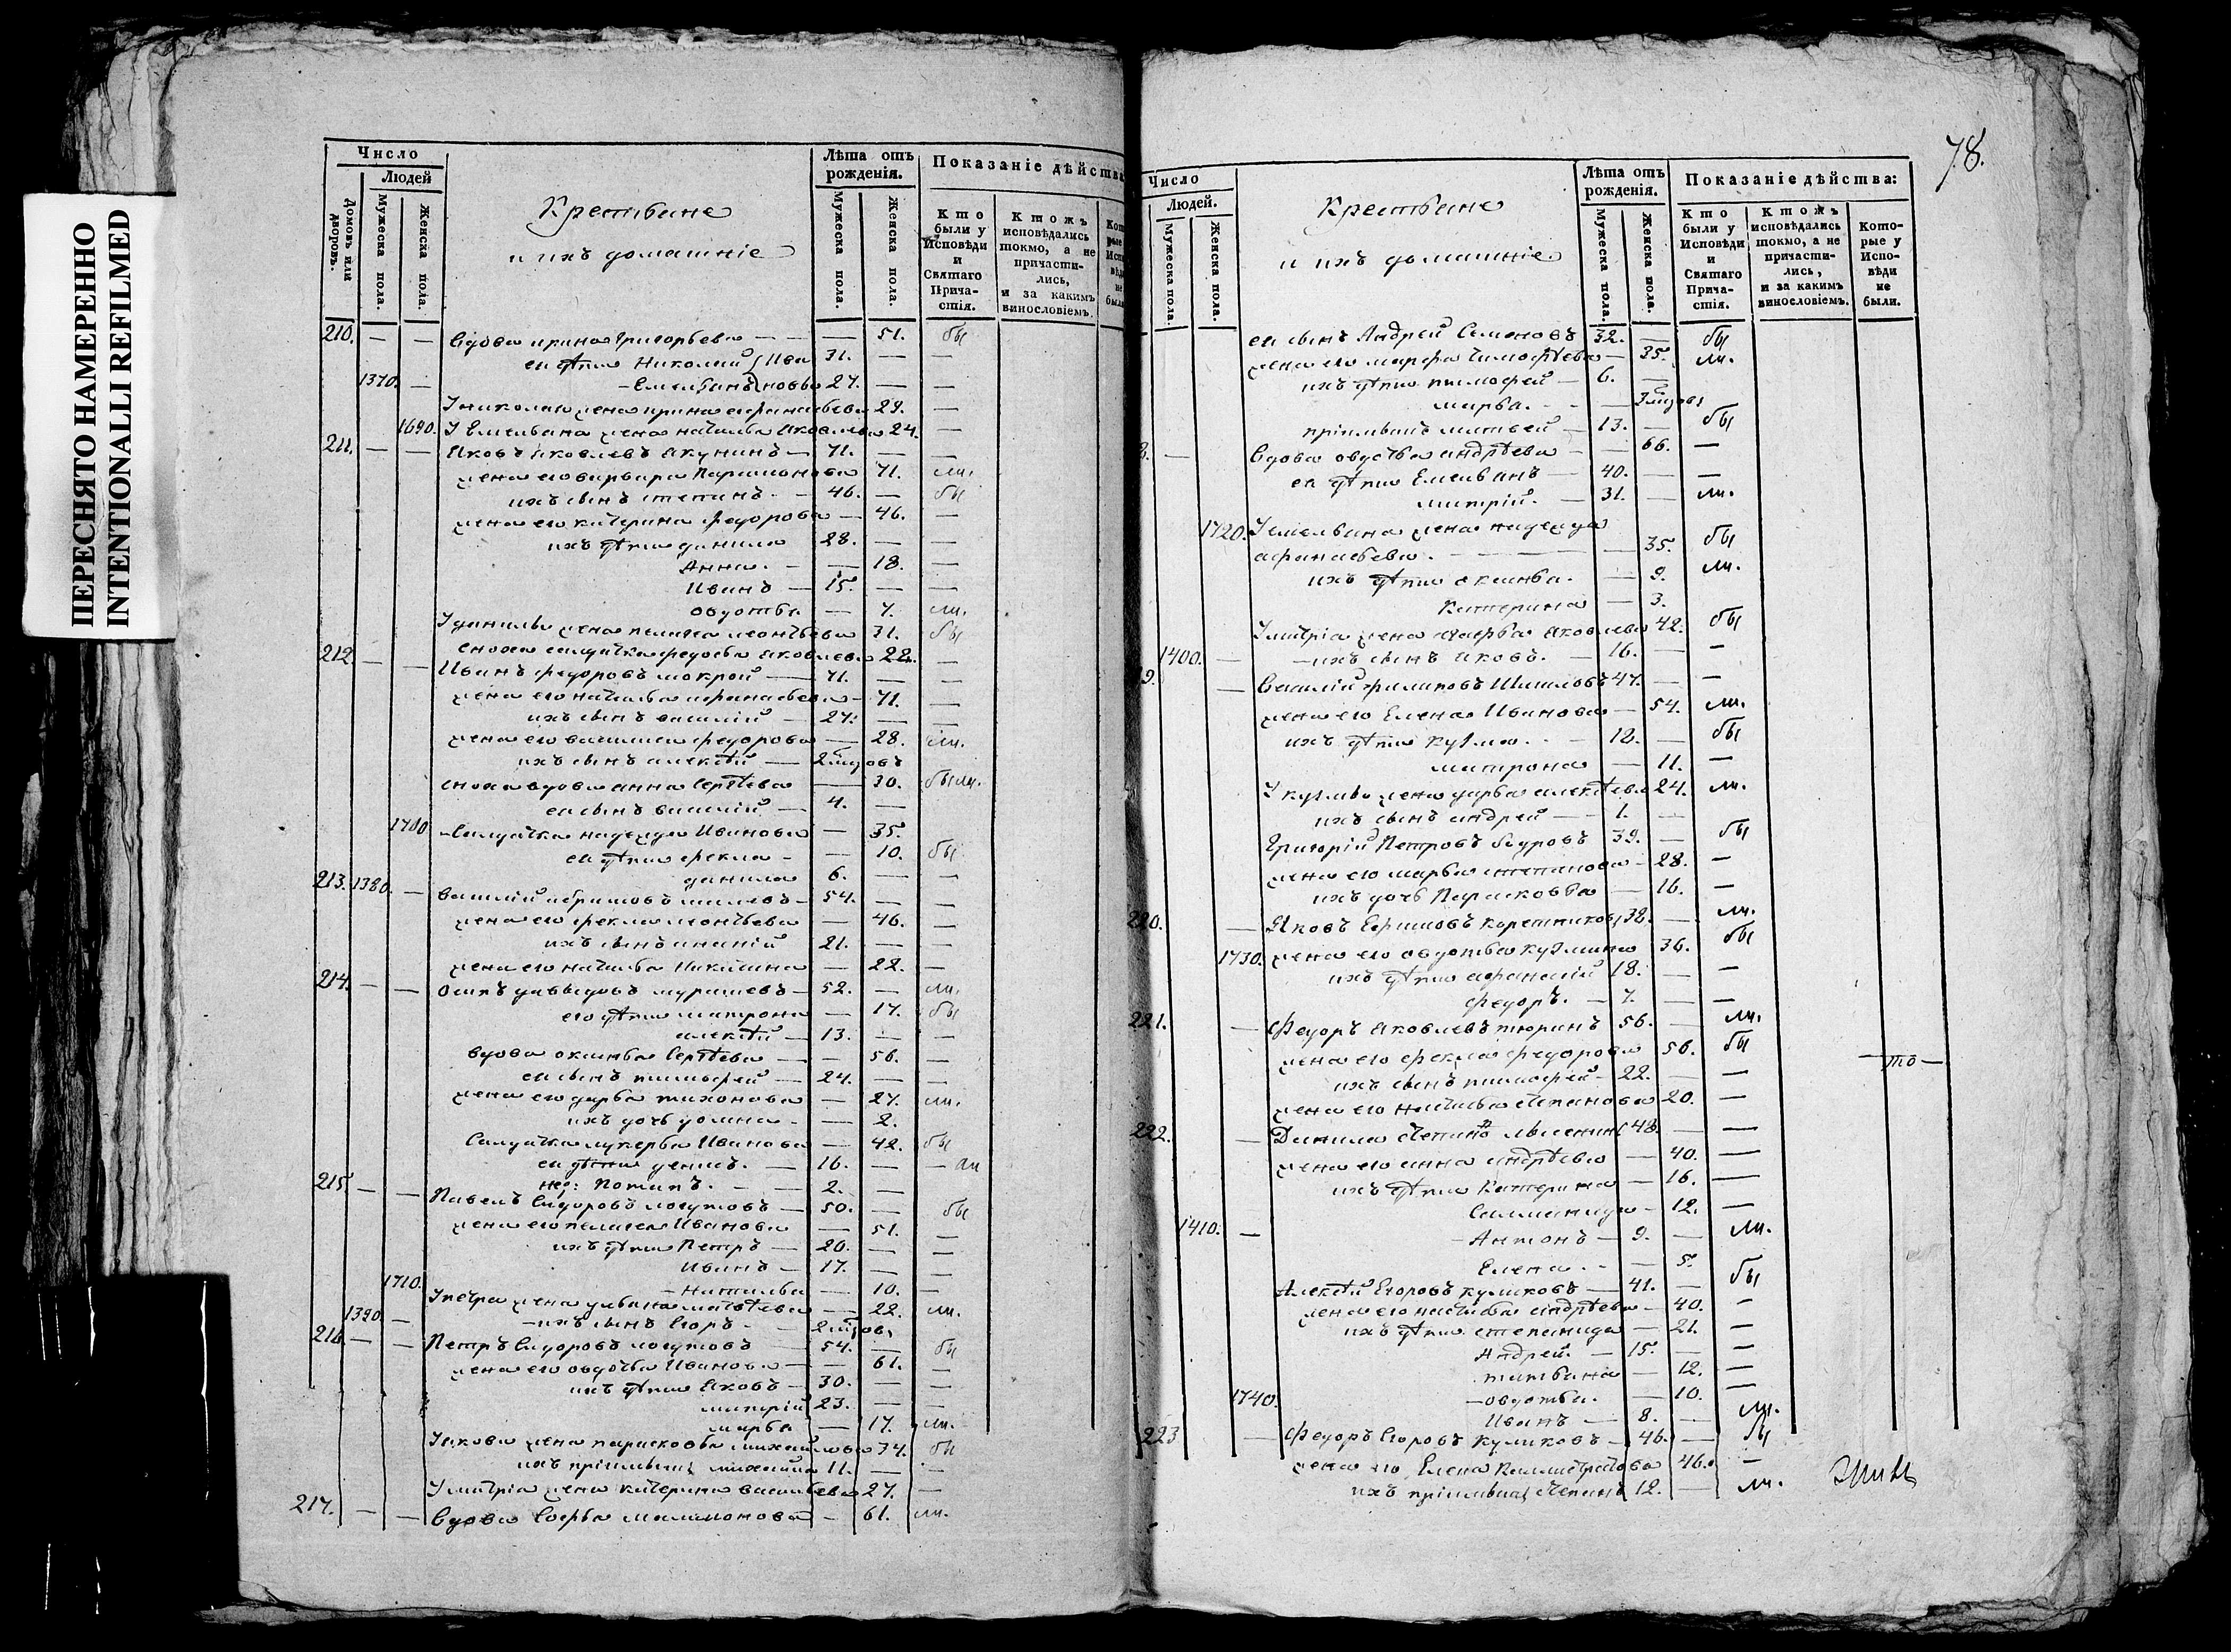 ПЕРЕСНЯТО НАМЕРЕННО
INTENTIONALLI REFILMED
Число
Людей
Домовъ или дворовъ.
Мужеска пола.
Женска пола.
Крестьяне
и ихъ домашніе
Лѣта отъ рожденія.
Мужеска пола.
Женска пола.
Показаніе дѣйства
Кто были у Исповѣди и Святаго Причастія.
Ктожъ исповѣдались токмо, а не причастились, и за какимъ винословіемъ.
210. — — Вдова ирина Григорьева — — 51. бы
ея дѣти Николай Ива 31. — —
1370. — Емельянъ новы 27. — —
У николая жена ирина афанасьева 29. —
1690. У Емельяна жена наталья Яковлева 24. —
211. — — Яковъ Яковлевъ Якунинъ — 71. — —
жена его варвара 71. ли.
ихъ сынъ степанъ — 46. — бы
жена его катерина федорова — 46. —
ихъ дѣти данила 28. — —
Анна. — — 18. —
Иванъ — 15. — —
овдотья — 7. ли.
У данилы жена пелагея леонтьева 31. бы
сноха салдатка федосья Яковлева 22. —
212. — — Иванъ федоровъ мокрой — 71. — —
жена его наталья афанасьева — 71. —
ихъ сынъ василій — 27. — —
жена его василиса федорова — 28. ли.
ихъ сынъ алексѣй — 2 мцовъ
сноха вдова анна Сергѣева — 30. были.
ея сынъ василій — 4. —
1700 Салдатка надежда Иванова — 35.
ея дѣти фекла — — 10. бы
данила 6. — —
213. 1380. — василій абрамовъ — 54. — —
жена его фекла леонтьева — 46. —
ихъ сынъ ананій 21. — —
жена его наталья Никитина — 22. —
214. — — осипъ давыдовъ мурашевъ — 52. — ли.
его дѣти матрона — 17. бы
алексѣй — 13. — —
вдова оксинья Сергѣева — — 56. —
ея сынъ тимофей — 24. — —
жена его дарья тихонова — 27. ли.
ихъ дочь домна — — 2.
Салдатка лукерья Иванова — 42. бы
ея дѣти денисъ. — 16. — — ли
Потапъ. — — 2. —
215. — — Павелъ Сидоровъ — 50. — бы
жена его пелагея Иванова — 51. —
ихъ дѣти Петръ — 20. — —
Иванъ — 17. — —
1710. — Наталья — 10. —
У петра жена ульяна матвѣева — 22. ли.
1390. — ихъ сынъ Егоръ — 2 мцов
216. — — Петръ Сидоровъ — 54. — бы
жена его овдотья Иванова — — 61. —
ихъ дѣти Яковъ — 30. — —
митрій 23. — —
марья — 17. ли.
У якова жена парасковья михайлова 34. бы
ихъ пріимышъ михайла 11. — —
У митрія жена катерина васильева 27. —
217. — — Вдова Софья — 61. ли.
78.
Число
Людей.
Мужеска пола.
Женска пола.
Крестьяне
и ихъ домашніе
Лѣта отъ рожденія.
Мужеска пола.
Женска пола.
Показаніе дѣйства:
Кто были у Исповѣди и Святаго Причастія.
Ктожъ исповѣдались токмо, а не причастились, и за какимъ винословіемъ.
Которые у Исповѣди не были.
ея сынъ Андрей Семеновъ 32. — бы
жена его марфа тимофѣева — 35. ли.
ихъ дѣти тимофей — 6. —
марья. — — 3 мцовъ
пріимышъ матвей — 13. — бы
8. — Вдова овдотья андрѣева — — 66. —
ея дѣти Емельянъ — 40. — —
митрій. — 31. — ли.
1720. У емельяна жена надежда
афанасьева. — — 35. бы
ихъ дѣти оксинья. — 9. ли.
Катерина — 3.
У митрія жена Яковлева 42. бы
1400. — ихъ сынъ Яковъ. — 16. — —
9. — Василій филиповъ 47. — —
жена его Елена Иванова — 54. ли.
ихъ дѣти кузма. — 12. — бы
матрона — 11. —
У кузмы жена дарья алексѣева 24. ли.
ихъ сынъ андрей — — 1. —
Григорій Петровъ 39. — бы
жена его марья степанова — 28. —
ихъ дочь Парасковья — 16. —
220. — Яковъ 38. — ли.
1730. жена его овдотья кузмина 36. бы
ихъ дѣти афанасій 18. — —
федоръ. — 7. — —
221. — Федоръ Яковлевъ тюринъ 56. — ли.
жена его фекла федорова 56. бы
ихъ сынъ тимофей — 22. — —
жена его наталья степанова 20. —
222. — Данила 48. — —
жена его анна андрѣева — 40. —
ихъ дѣти Катерина — 16. —
— 12. —
1410. — Антонъ — 9. — ли.
Елена. — — 5.
Алексѣй Егоровъ куликовъ — 41. — бы
жена его наталья андрѣева — 40. —
ихъ дѣти степанида — 21. —
Андрей. — 15. — —
татьяна — 12. —
1740. — овдотья. — 10. —
Иванъ — 8. — ли.
223 — Федоръ Егоровъ куликовъ — 46. — бы
жена его Елена 46. —
ихъ пріимышъ степанъ 12. — ли.